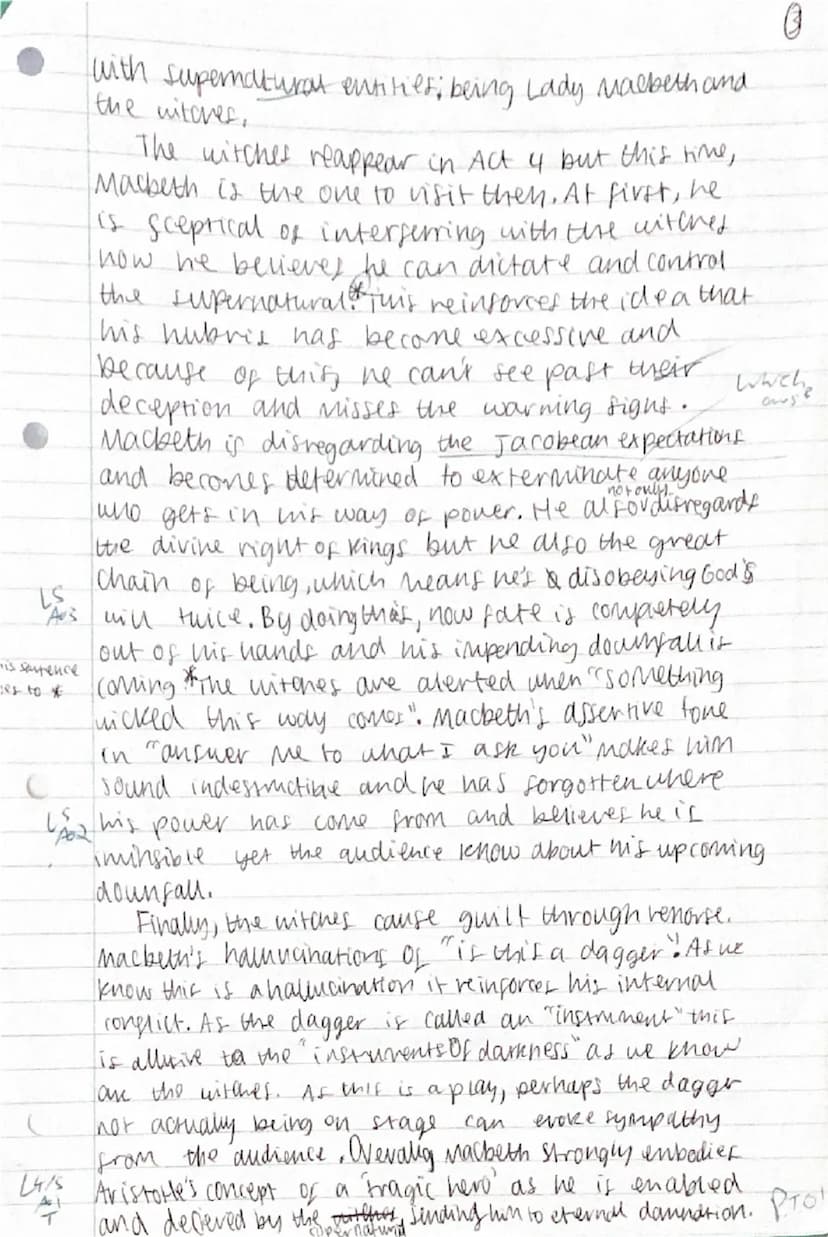 3
with supernatural entities; being Lady Macbeth and
the witches.
The witches reappear in Act 4 but this time,
Macbeth is the one to visit them. At first, he
is sceptical of interferring with the witches
now he believes he can dictate and control
the supernatural.* This reinforces the idea that
his hubris has become excessive and
because of this, he can't see past their
deception and misses the warning signs.
which
ones?
Macbeth is disregarding the Jacobean expectations
and becomes determined to exterminate anyone
not only
who gets in his way of power. He also disregards
the divine right of kings but he also the great
chain of being, which means he's disobeying God's
L5
AO3
will twice. By doing this, now fate is completely
out of his hands and his impending downfall is
is sentence
es to *
coming * The witches are alerted when "something
wicked this way comes". Macbeth's assertive tone
in "answer me to what I ask you" makes him
sound indestructible and he has forgotten where
L5
AO2
his power has come from and believes he is
invinsible yet the audience know about his upcoming
downfall.
Finally, the witches cause guilt through remorse.
Macbeth's hallucinations of "is this a dagger". As we
know this is a hallucination it reinforces his internal
conflict. As the dagger is called an "instrument" this
is allusive to the "instruments of darkness" as we know
are the witches. As this is a play, perhaps the dagger
not actually being on stage can evoke sympathy
from the audience. Overall, Macbeth strongly embodies
L4/5
AO1
T
Aristotle's concept of a 'tragic hero' as he is enabled
and decieved by the witches, sending him to eternal damnation.
supernatural
PTO!